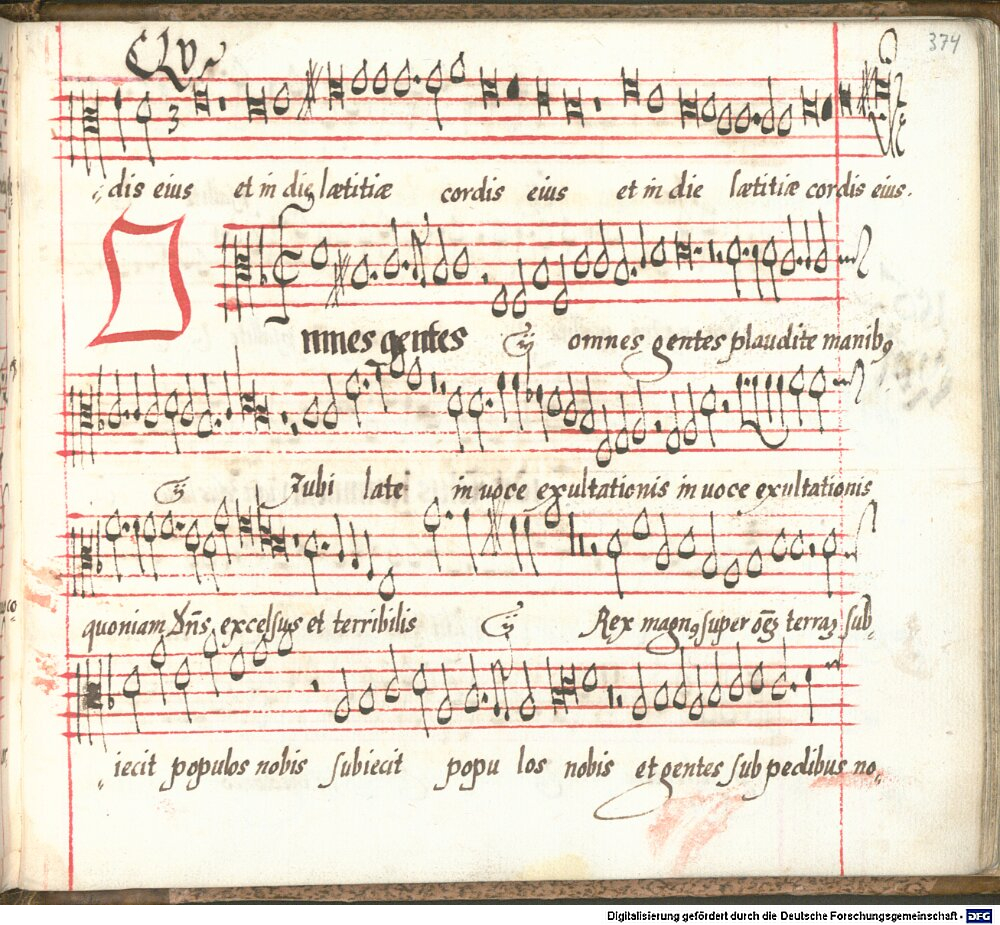 374
CLV
dis eius et in die lætitiæ cordis eius et in die lætitiæ cordis eius.
Omnes gentes ij omnes gentes plaudite manibꝰ
ij Iubilate i in voce exultationis in voce exultationis
quoniam Dñs excelsus et terribilis ij Rex magnꝰ super oēꝫ terraꝫ sub-
iecit populos nobis subiecit populos nobis et gentes sub pedibus no-
Digitalisierung gefördert durch die Deutsche Forschungsgemeinschaft - DFG